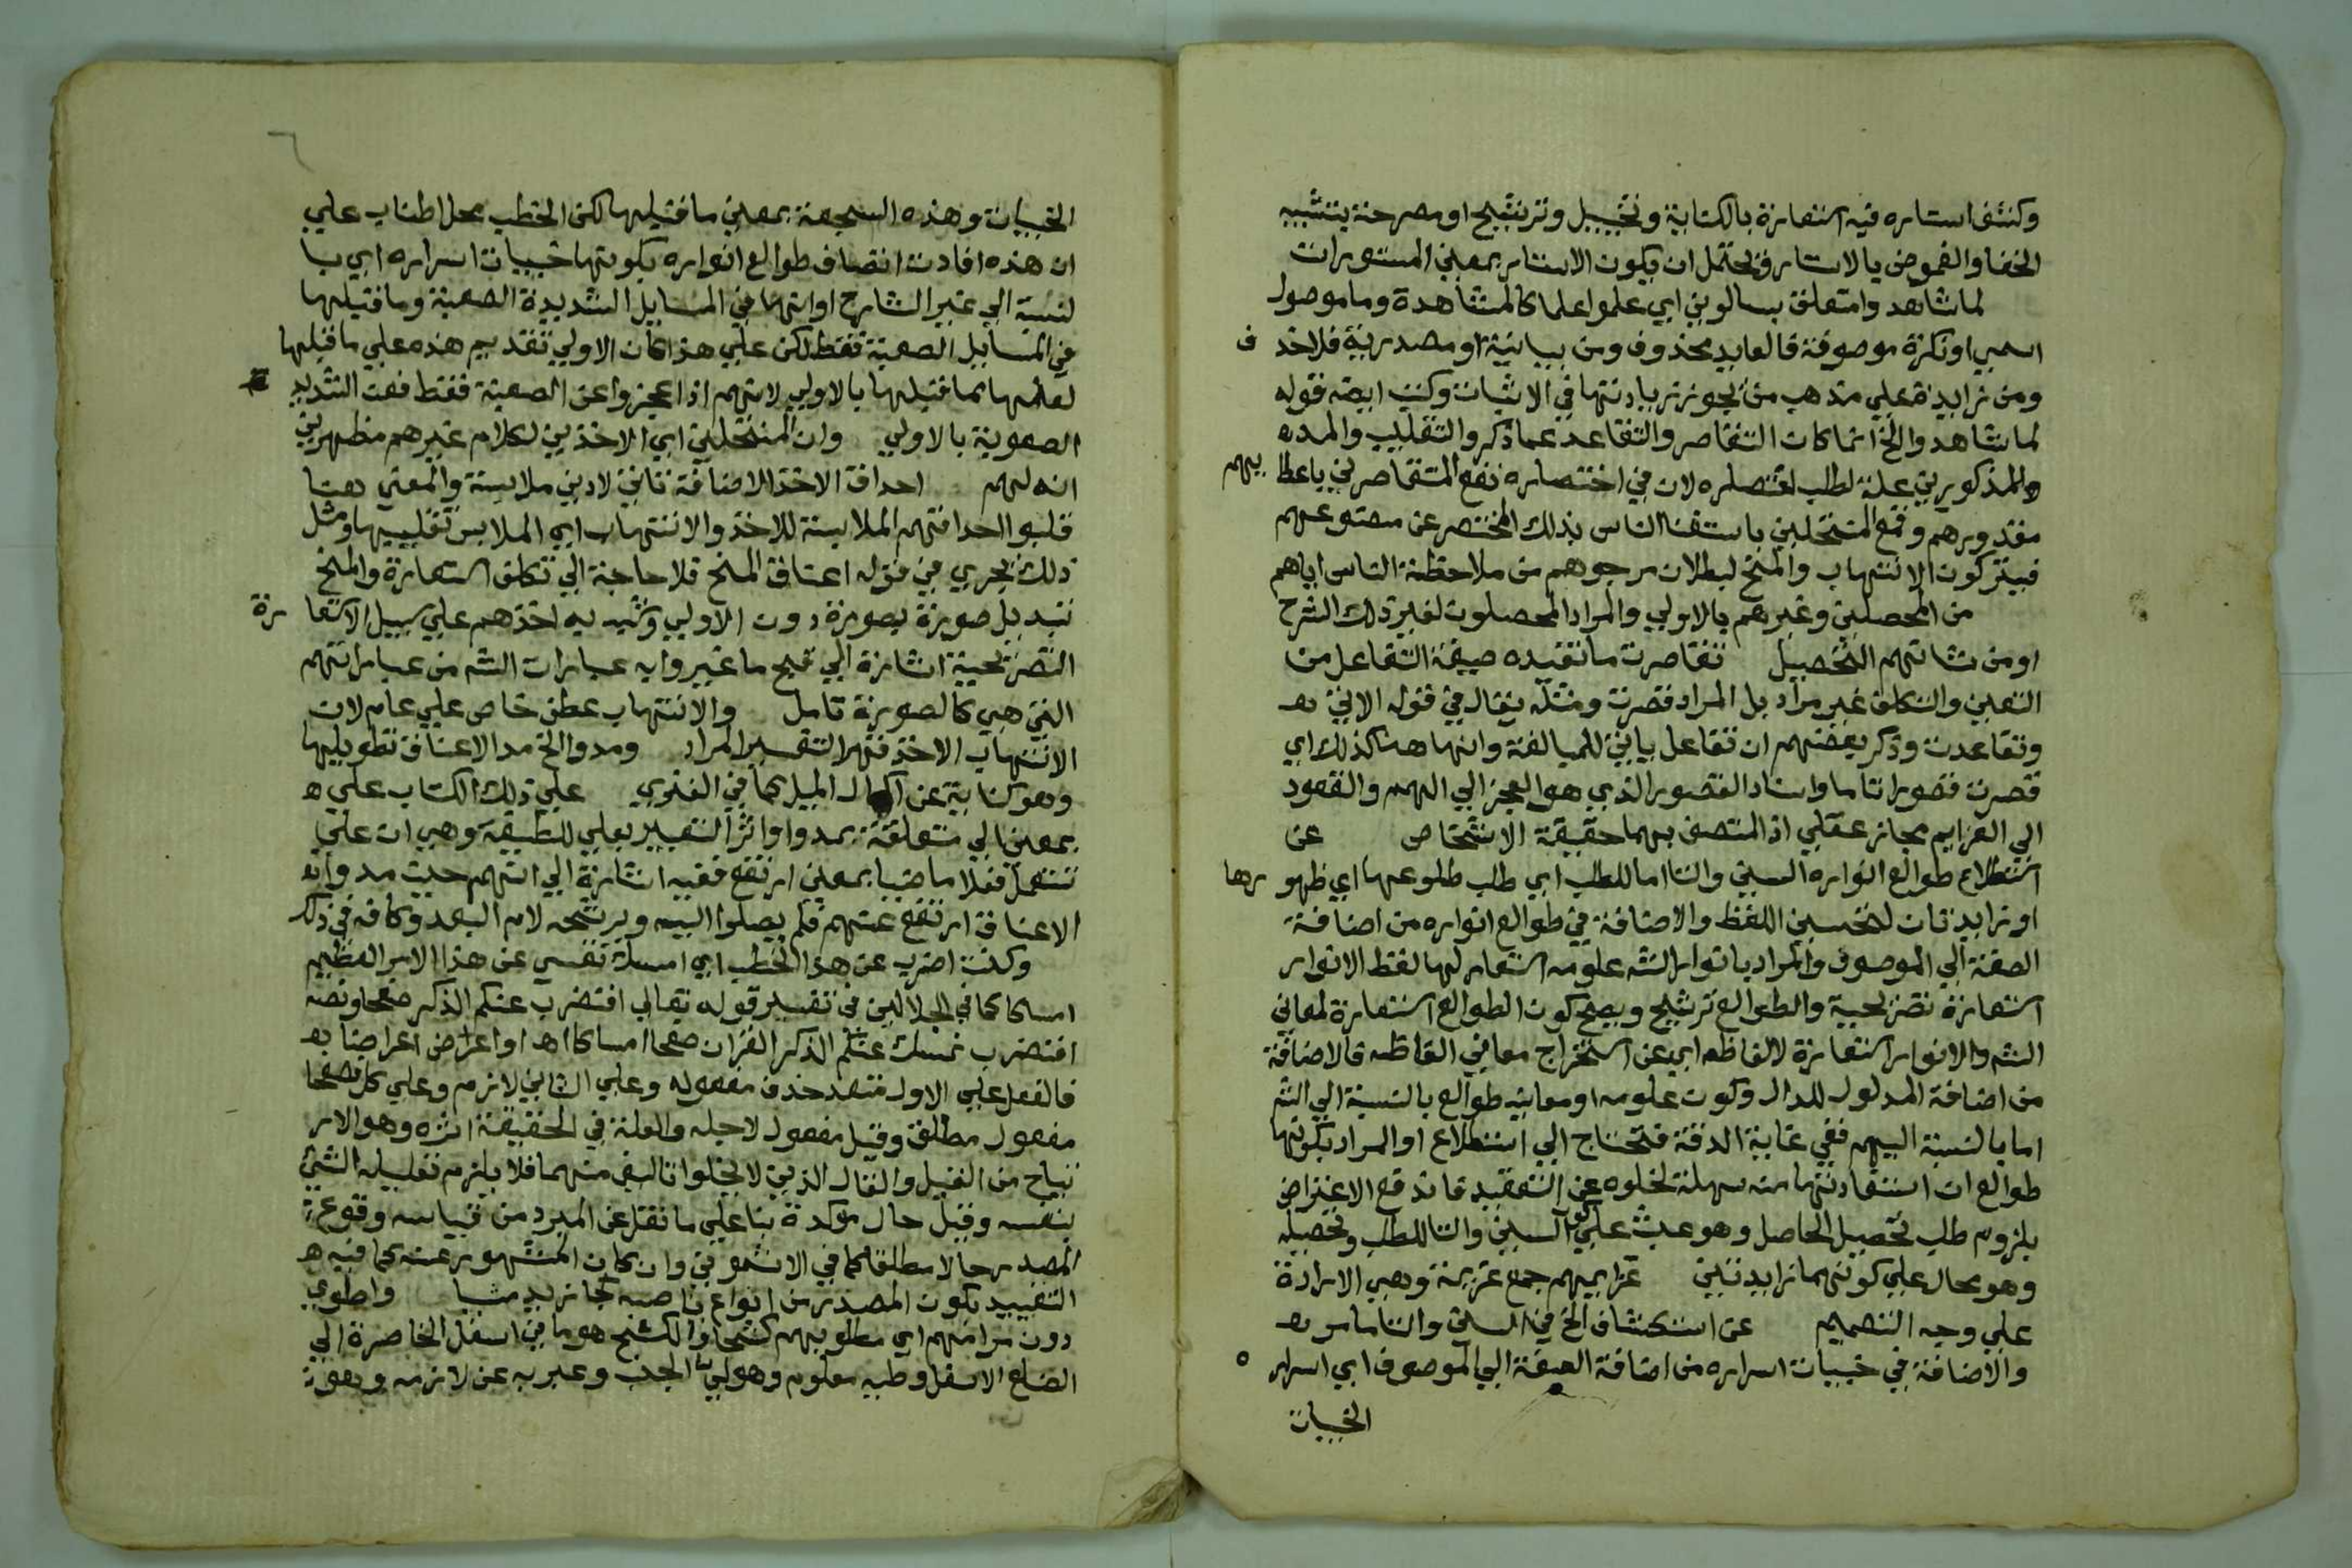 وكشف استاره فيه استعارة بالكناية وتخييل وترشيح او مصرحة بتشبيه
الخفا والغموض بالاستار ويحتمل ان يكون الاستار بمعني المستورات
لما شاهدوا متعلق بسالوني اي علموا علما كالمشاهدة وما موصول
اسمي او نكرة موصوفة فالعايد محذوف ومن بيانية او مصدرية فلا حذف
ومن زايدة علي مذهب من يجوز زيادتها في الاثبات وكتب ايضه قوله
لما شاهدوا الخ انما كان التقاصر والتقاعد عما ذكر والتقليب والمد
المذكورين علة لطلب اختصاره لان في اختصاره نفع المتقاصرين باعطايهم
مقدورهم وقمع المنتحلين باستغنا الناس بذلك المختصر عن مصنوعهم
فيتركون الانتهاب والمسخ لبطلان مرجوهم من ملاحظة الناس اياهم
من المحصلين وغيرهم بالاولي والمراد المحصلون لغير ذلك الشرح
او من شانهم التحصيل تقاصرت ما تفيده صيغة التفاعل من
التعني والتكلف غير مراد بل المراد قصرت ومثله يقال في قوله الاتي بعد
وتقاعدت وذكر بعضهم ان تفاعل ياتي للمبالغة وانها هنا كذلك اي
قصرت قصورا تاما واسناد القصور الذي هو العجز الي الهمم والقعود
الي العزايم مجاز عقلي اذ المتصف بهما حقيقة الاشخاص عن
استطلاع طوالع انواره السين والتا اما للطلب اي طلب طلوعها اي ظهورها
او زايدتان لتحسين اللفظ والاضافة في طوالع انواره من اضافة
الصفة الي الموصوف والمراد بانوار الشه علومه استعار لها لفظ الانوار
استعارة تصريحية والطوالع ترشيح ويصح كون الطوالع استعارة لمعاني
الشه والانوار استعارة لالفاظه اي عن استخراج معاني الفاظه فالاضافة
من اضافة المدلول للدال وكون علومه او معانيه طوالع بالنسبة الي الشه
اما بالنسبة اليهم ففي غاية الدقة فتحتاج الي استطلاع او المراد بكونها
طوالع ان استفادتها منه سهلة لخلوه عن التعقيد فاندفع الاعتراض
بلزوم طلب تحصيل الحاصل وهو عبث علي كون السين والتا للطلب وتحصيله
وهو محال علي كونهما زايدتين عزايمهم جمع عزيمة وهي الارادة
علي وجه التصميم عن استكشاف الخ في السين والتا ما مر بعد
والاضافة في خبيات اسراره من اضافة الصفة الي الموصوف اي اسراره
الخبيات
الخبيات وهذه السجعة بمعني ما قبلها لكن الخطب محل اطناب علي
ان هذه افادت اتصاف طوالع انواره بكونها خبيات اسراره اي با
لنسبة الي غير الشارح او انها في المسايل الشديدة الصعبة وما قبلها
في المسايل الصعبة فقط لكن علي هذا كان الاولي تقديم هذه علي ما قبلها
لعلمها مما قبلها بالاولي لانهم اذا عجزوا عن الصعبة فقط فعن الشديد
الصعوبة بالاولي وان المنتحلين اي الاخذين لكلام غيرهم مظهرين
انه لهم احداق الاخذ الاضافة تاتي لادني ملابسة والمعني هنا
قلبوا احداقهم الملابسة للاخذ والانتهاب اي الملابس تقليبها ومثل
ذلك يجري في قوله اعناق المسخ فلا حاجة الي تكلف استعارة والمسخ
تبديل صورة بصورة دون الاولي وشبه به اخذهم علي سبيل الاستعارة
التصريحية اشارة الي قبح ما غيروا به عبارات الشه من عباراتهم
التي هي كالصورة تامل والانتهاب عطف خاص علي عام لان
الانتهاب الاخذ قهرا لتقسير المراد ومدوا الخ مد الاعناق تطويلها
وهو كناية عن اكمال الميل كما في الغنوي علي ذلك الكتاب علي
بمعني الي متعلقة بمدوا واثر التعبير بعلي للطيفة وهي ان علي
تستعمل فعلا ماضيا بمعني ارتفع ففيه اشارة الي انهم حيث مدوا له
الاعناق ارتفع عنهم فلم يصلوا اليه ويرشحه لام البعد وكافه في ذلك
وكنت اضرب عن هذا الخطب اي امسك نفسي عن هذا الامر العظيم
امساكا كما في الجلالين في تفسير قوله تعالي افنضرب عنكم الذكر صفحا ونصه
افنضرب نمسك عنكم الذكر القران صفحا امساكا اهـ او اعرض اعراضا بعد
فالفعل علي الاول متعد حذف مفعوله وعلي الثاني لازم وعلي كل فصفحا
مفعول مطلق وقيل مفعول لاجله والعلة في الحقيقة اثره وهو الامر
تياح من القيل والقال الذين لا يخلوا تاليف منهما فلا يلزم تعليله الشي
بنفسه وقيل حال مؤكدة بنا علي ما نقل عن المبرد من قياسه وقوع
المصدر حالا مطلقا كما في الاشموني وان كان المشهور عنه كما فيه
التقييد بكون المصدر من انواع ناصبه كجا زيد مشيا واطوي
دون مرامهم اي مطلوبهم كشحا والكشح هو ما في اسفل الخاصرة الي
الضلع الاسفل وطيه معلوم وهو لي الجنب وعبر به عن لازمه وهو